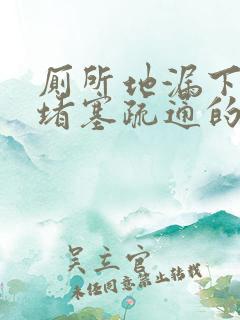 厕所地漏下
堵塞疏通的
吴立官
未经同意禁止转载